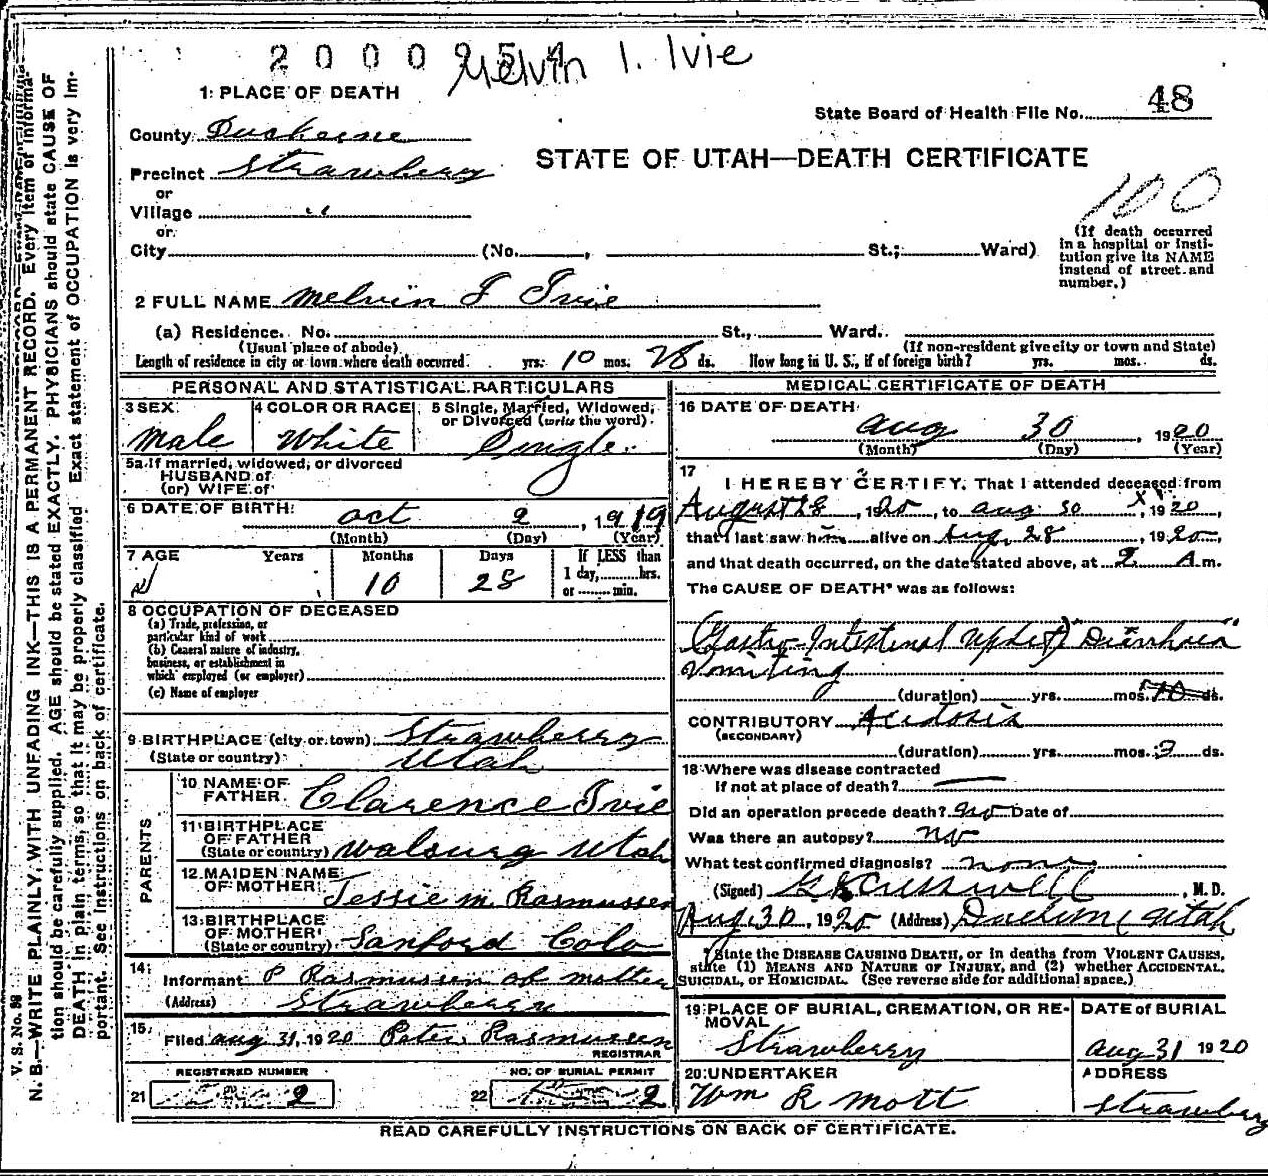 2000954 Melvin I. Ivie
1: PLACE OF DEATH
State Board of Health File No. 48
County Duchesne
STATE OF UTAH—DEATH CERTIFICATE
Precinct Strawberry
100
or
Village "
or
City (No. , St.; Ward)
(If death occurred in a hospital or insti-
tution give its NAME instead of street and number.)
2 FULL NAME Melvin I Ivie
(a) Residence. No. St., Ward.
(Usual place of abode) (If non-resident give city or town and State)
Length of residence in city or town where death occurred. yrs. 10 mos. 28 ds. How long in U. S., if of foreign birth? yrs. mos. ds.
PERSONAL AND STATISTICAL PARTICULARS
3 SEX: 4 COLOR OR RACE 5 Single, Married, Widowed,
or Divorced (write the word).
Male White Single
5a If married, widowed, or divorced
HUSBAND of
(or) WIFE of
6 DATE OF BIRTH: Oct 2, 1919
(Month) (Day) (Year)
7 AGE Years Months Days If LESS than
1 day, hrs.
or min.
10 28
8 OCCUPATION OF DECEASED
(a) Trade, profession, or
particular kind of work
(b) General nature of industry,
business, or establishment in
which employed (or employer)
(c) Name of employer
9 BIRTHPLACE (city or town) Strawberry
(State or country) Utah
PARENTS
10 NAME OF
FATHER Clarence Ivie
11 BIRTHPLACE
OF FATHER
(State or country) Walsburg Utah
12 MAIDEN NAME
OF MOTHER Jessie M. Rasmussen
13 BIRTHPLACE
OF MOTHER
(State or country) Sanford Colo
14
Informant P Rasmussen of mother
(Address) Strawberry
15
Filed Aug 31, 1920 Peter Rasmussen
REGISTRAR
REGISTERED NUMBER NO. OF BURIAL PERMIT
21 2 22 2
MEDICAL CERTIFICATE OF DEATH
16 DATE OF DEATH
Aug 30, 1920
(Month) (Day) (Year)
17
I HEREBY CERTIFY, That I attended deceased from
August 28, 1920, to Aug. 30, 1920,
that I last saw him alive on Aug. 28, 1920,
and that death occurred, on the date stated above, at 2 A m.
The CAUSE OF DEATH* was as follows:
(Gastro-Intestinal Upset) "Diarrhoea"
Vomiting
(duration) yrs. mos. 10 ds.
CONTRIBUTORY Acidosis
(SECONDARY)
(duration) yrs. mos. 3 ds.
18 Where was disease contracted
If not at place of death?
Did an operation precede death? no Date of
Was there an autopsy? no
What test confirmed diagnosis? none
(Signed) Cresswell, M. D.
Aug 30, 1920 (Address) Duchesne Utah
*State the DISEASE CAUSING DEATH, or in deaths from VIOLENT CAUSES,
state (1) MEANS AND NATURE OF INJURY, and (2) whether ACCIDENTAL,
SUICIDAL, or HOMICIDAL. (See reverse side for additional space.)
19 PLACE OF BURIAL, CREMATION, OR RE-
MOVAL
Strawberry
DATE of BURIAL
Aug 31 1920
20 UNDERTAKER
Wm R Mott
ADDRESS
Strawberry
READ CAREFULLY INSTRUCTIONS ON BACK OF CERTIFICATE.
V. S. No. 98
N. B.—WRITE PLAINLY, WITH UNFADING INK—THIS IS A PERMANENT RECORD. Every item of informa-
tion should be carefully supplied. AGE should be stated EXACTLY. PHYSICIANS should state CAUSE OF
DEATH in plain terms, so that it may be properly classified. Exact statement of OCCUPATION is very im-
portant. See instructions on back of certificate.